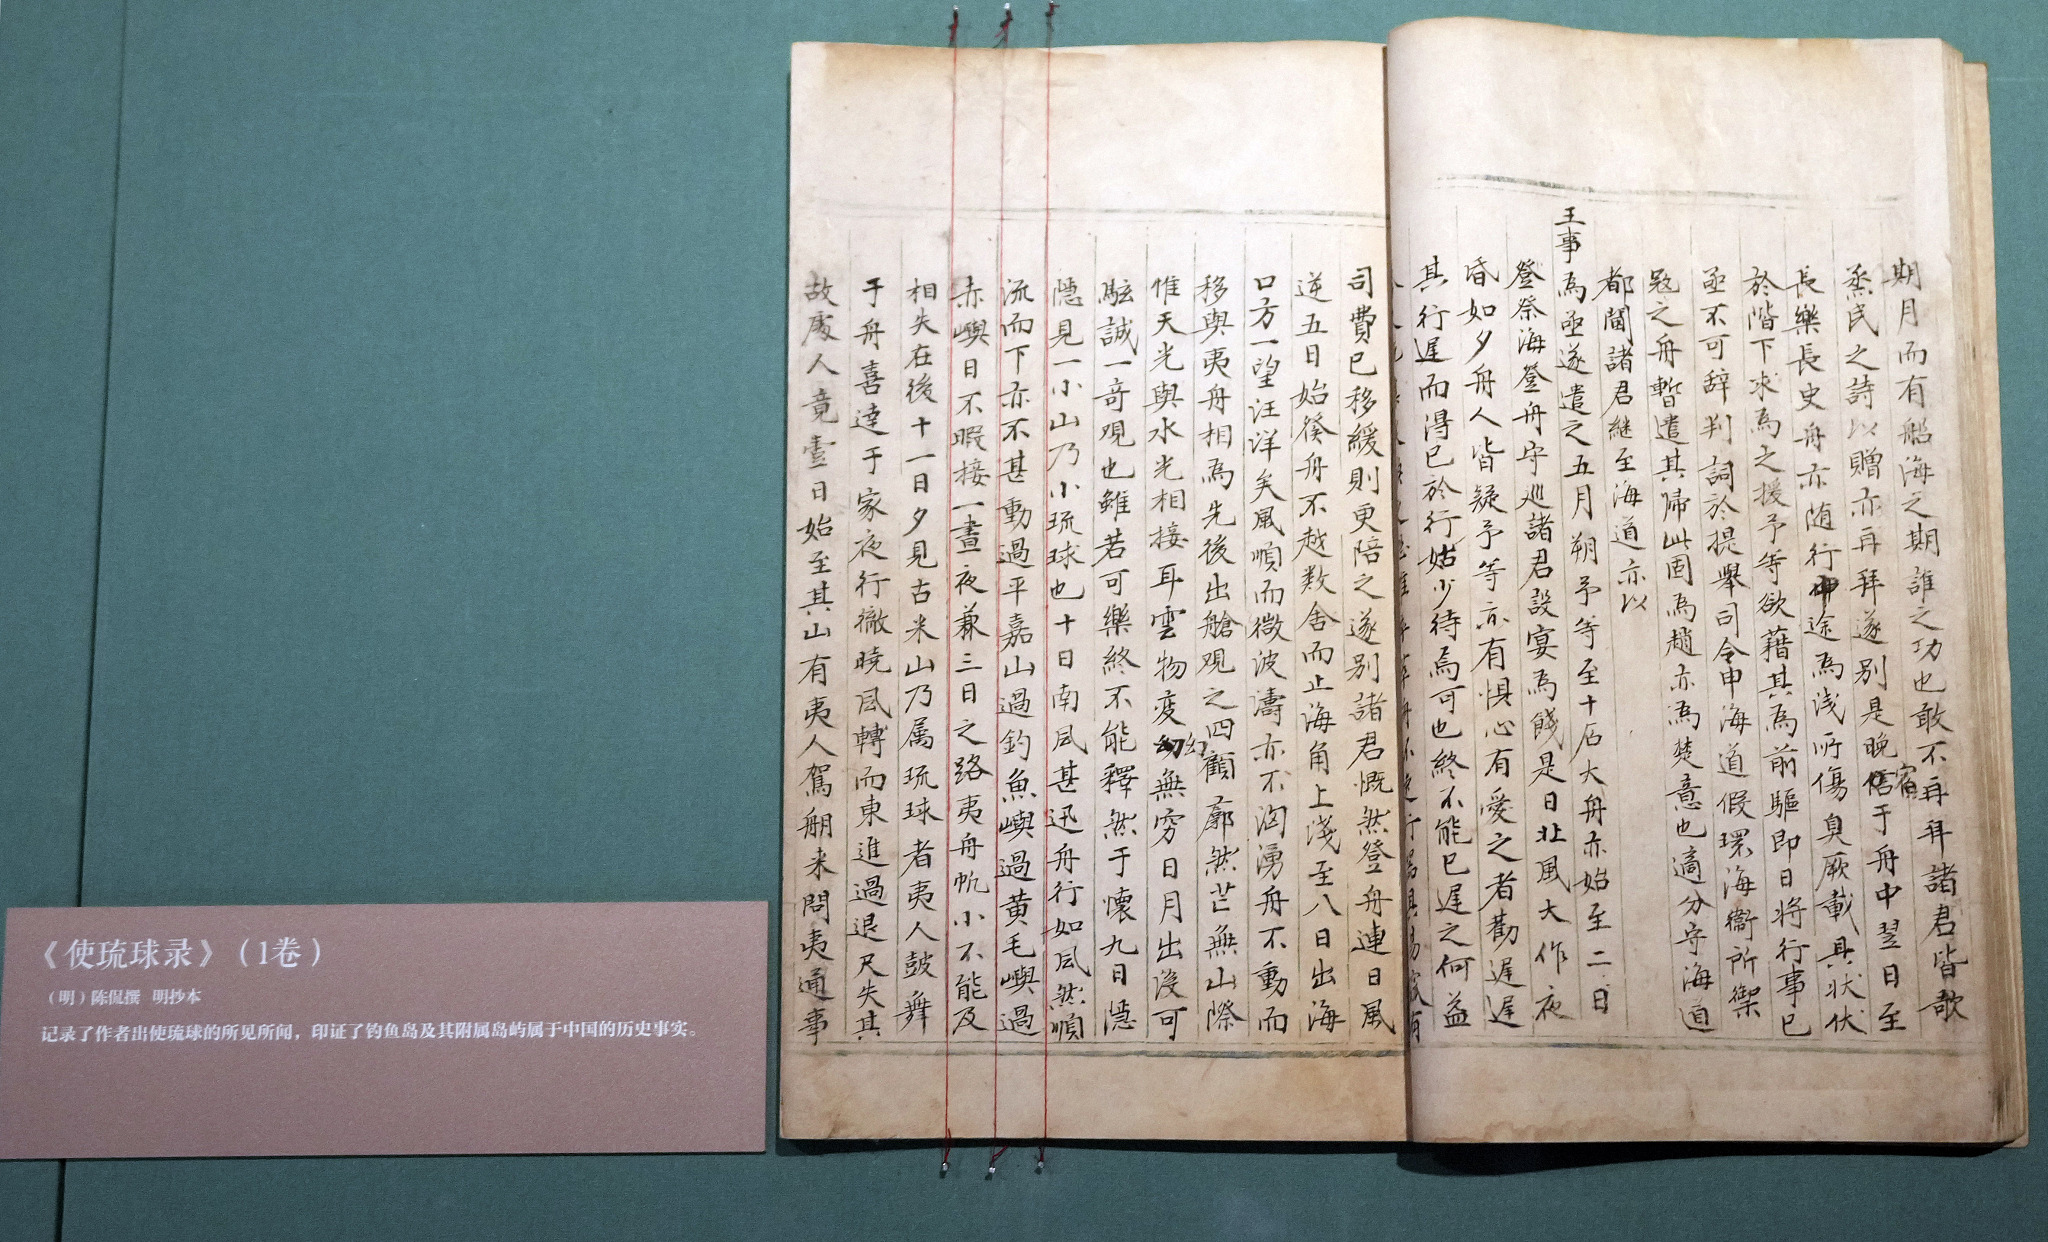 期月而有船海之期誰之功也敢不再拜諸君皆歌
烝民之詩以贈亦再拜遂别是晚宿于舟中翌日至
長樂長史舟亦随行途為浅所傷臭厥載具状伏
於階下求為之援予等欲藉其為前驅即日将行事已
亟不可辞判詞於提舉司令申海道假環海衞所禦
冦之舟暫遣其归此固為趙亦為楚意也適分守海道
都閫諸君継至海道亦以
王事為亟遂遣之五月朔予等至十石大舟亦始至二日
登祭海登舟守巡諸君設宴為餞是日北風大作夜
昏如夕舟人皆疑予等亦有惧心有愛之者勸遲遲
其行遲而得已於行姑少待焉可也終不能已遲之何益
司費已移緩則更陪之遂别諸君慨然登舟連日風
逆五日始發舟不越数舍而止海角上淺至八日出海
口方一望汪洋矣風順而微波濤亦不洶湧舟不動而
移與夷舟相為先後出艙观之四顧廓然茫無山際
惟天光與水光相接耳雲物変幻無穷日月出没可
駭誠一奇观也雖若可樂終不能釋然于懷九日隠
隠見一小山乃小琉球也十日南风甚迅舟行如风然順
流而下亦不甚動過平嘉山過釣魚嶼過黄毛嶼過
赤嶼日不暇接一晝夜兼三日之路夷舟帆小不能及
相失在後十一日夕見古米山乃属琉球者夷人鼓舞
于舟喜達于家夜行徹曉风轉而東進過退尺失其
故處人竟壹日始至其山有夷人駕船来問夷通事
《使琉球录》（1卷）
（明）陈侃撰 明抄本
记录了作者出使琉球的所见所闻，印证了钓鱼岛及其附属岛屿属于中国的历史事实。